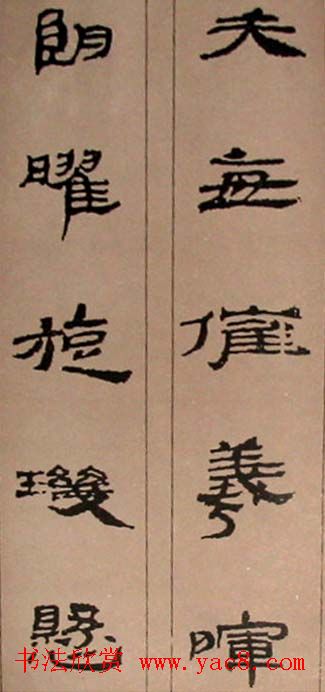 矢每催羲暉
朗曜旋璣懸
书法欣赏 www.yac8.com